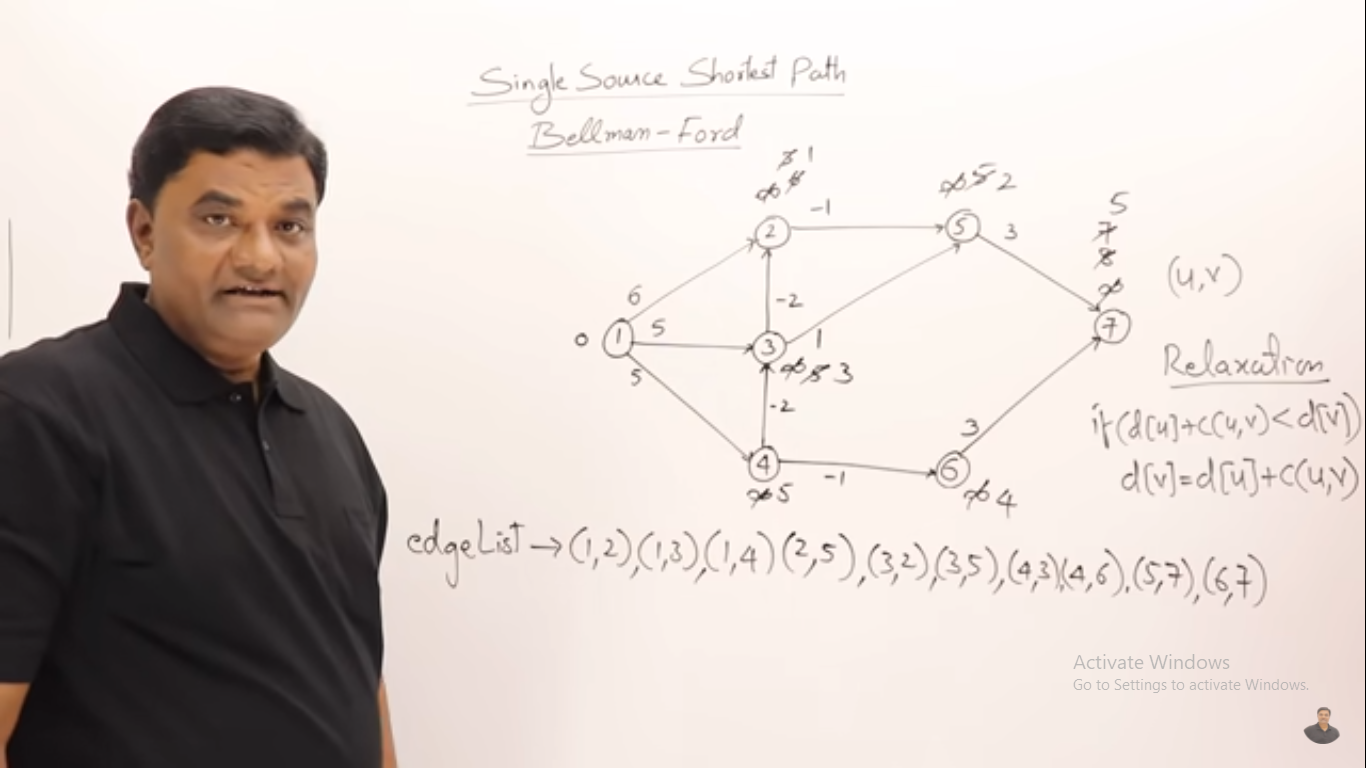 Single Source Shortest Path
Bellman-Ford
3 1
∞ 4
∞ 5 2
-1
5
7
8
∞
2
5
3
(u,v)
6
-2
0
1
5
3
1
7
∞ 5 3
Relaxation
5
-2
3
if(d[u]+c(u,v)<d[v])
4
-1
6
d[v]=d[u]+c(u,v)
∞ 5
∞ 4
edgeList → (1,2),(1,3),(1,4)(2,5),(3,2),(3,5),(4,3)(4,6),(5,7),(6,7)
Activate Windows
Go to Settings to activate Windows.